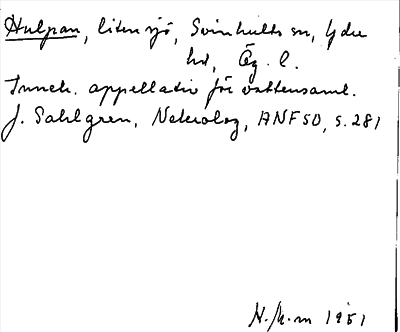 Hulpan, liten sjö, Svinhults sn, Ydre
hd, Ög. l.
Inneh. appellativ för vattensaml.
J. Sahlgren, Nekrolog, ANF 50, s. 281
1951